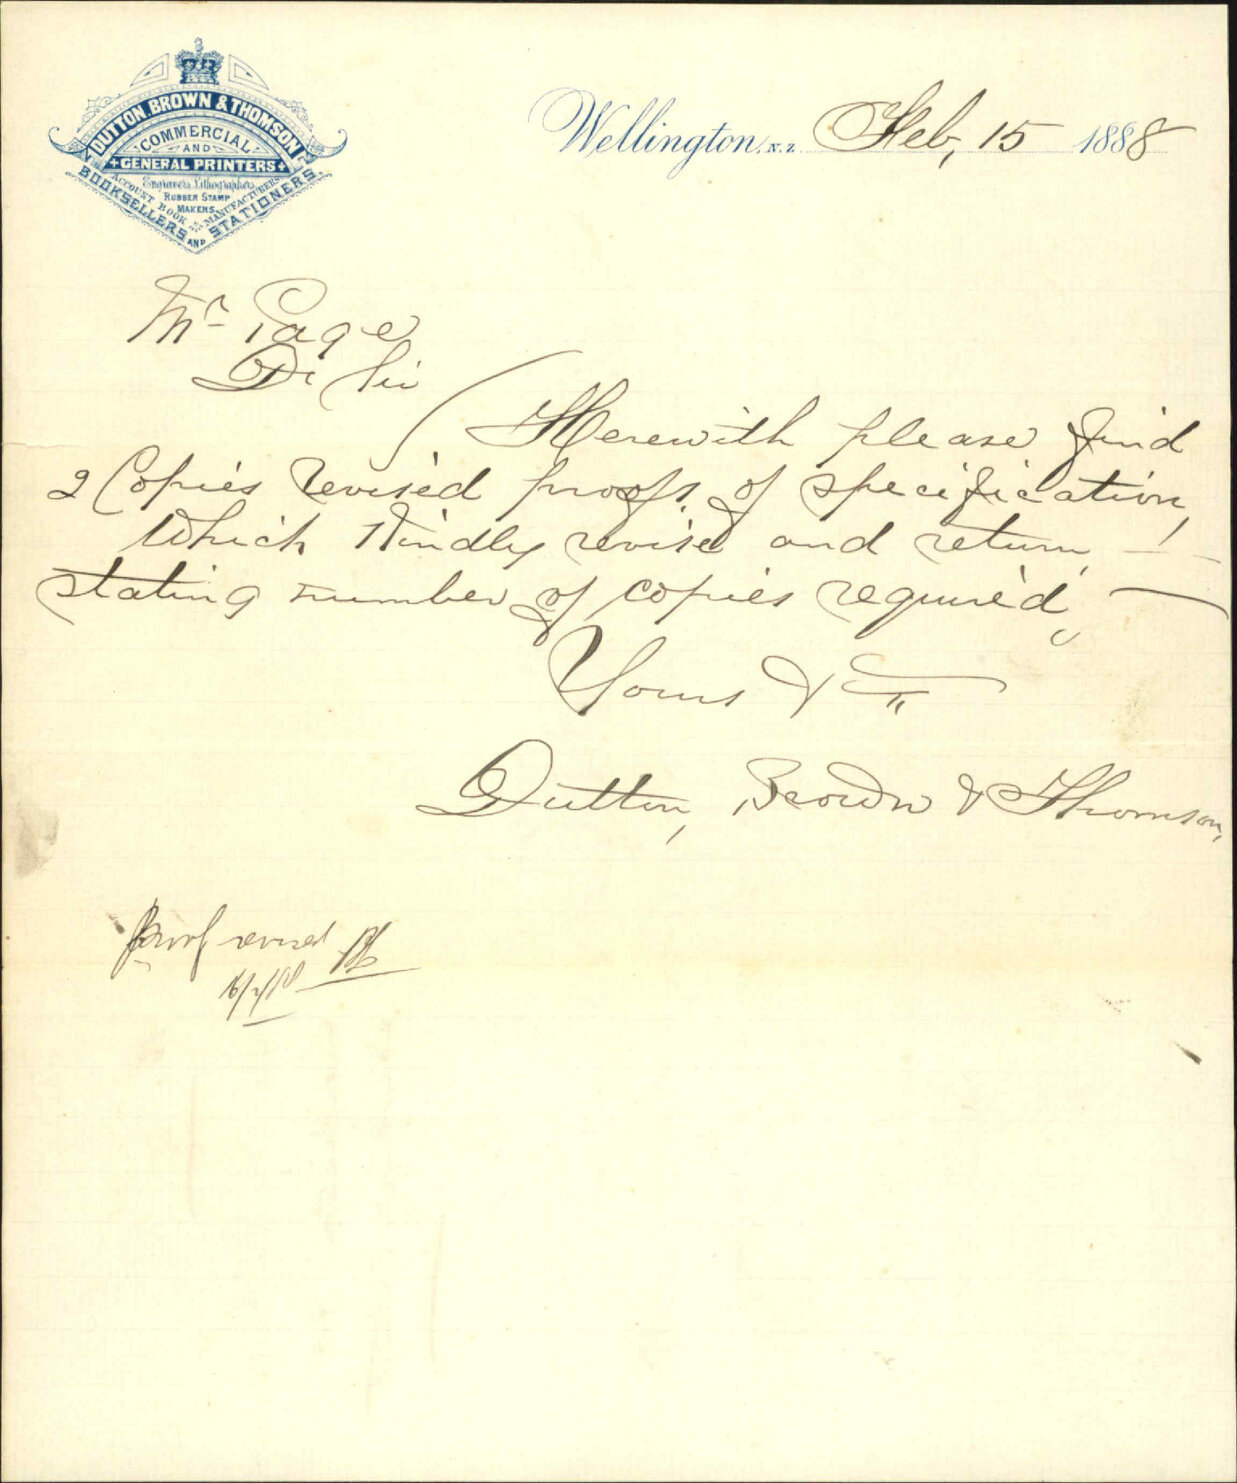 DUTTON, BROWN & THOMSON
COMMERCIAL
AND
GENERAL PRINTERS
Engravers, Lithographers
RUBBER STAMP
MAKERS
ACCOUNT BOOK MANUFACTURERS
BOOKSELLERS AND STATIONERS
Wellington, N.Z. Feb, 15 1888
Mr Page
Dr Sir
Herewith please find
2 Copies revised proofs of specification,
which kindly revise and return,
stating number of copies required,
Yours &
Dutton, Brown & Thomson,
Proof revised
16/2/88